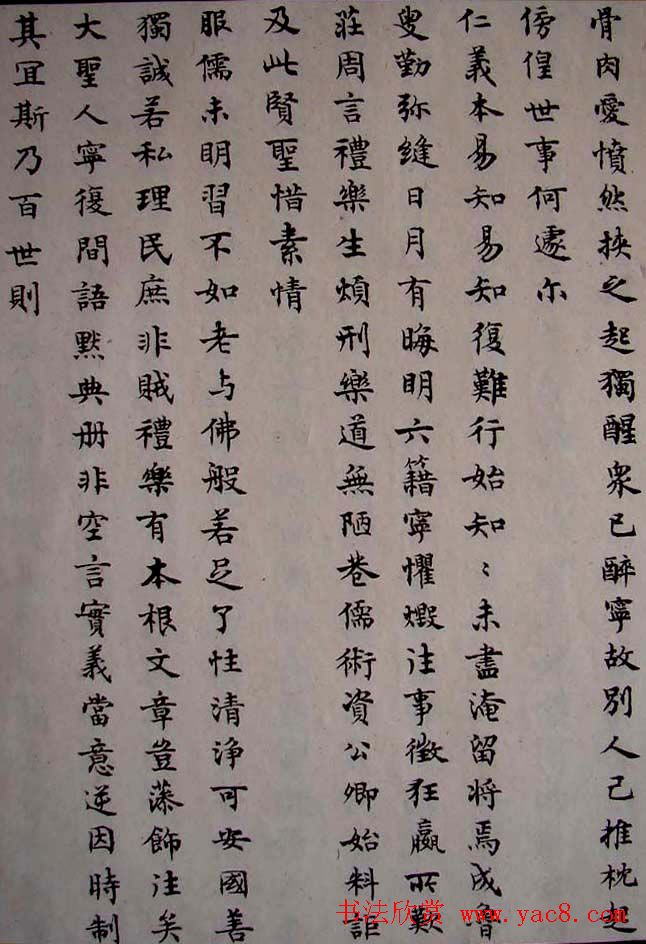 骨肉愛憤然挾之起獨醒眾已醉寧故別人己推枕起
傍偟世事何遽尓
仁義本易知易知復難行始知〻未盡淹留将焉成魯
叟勤弥縫日月有晦明六籍寧懼燬注事徵狂嬴所艱
莊周言禮樂生煩刑樂道無陋巷儒術資公卿始料詎
及此賢聖惜素情
服儒未明習不如老与佛般若足了性清淨可安國善
獨誠若私理民庶非賊禮樂有本根文章豈藻飾注矣
大聖人寧復間語黙典册非空言實義當意逆因時制
其宜斯乃百世則
书法欣赏 www.yac8.com